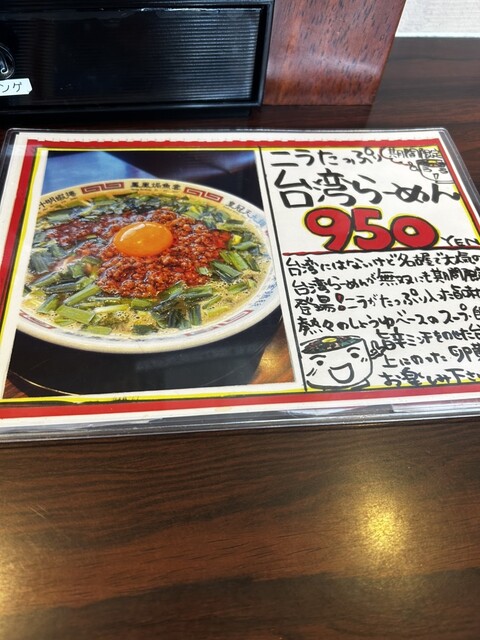 ング
ニラたっぷり
期間限定
台湾らーめん
950 YEN
台湾にはないけど名古屋で大人気の
台湾らーめんが無双にも期間限
登場!ニラがたっぷり入った旨味
熱々のしょうゆベースのスープ
旨辛ミンチをのせた台
上にのった卵
お楽しみ下さ